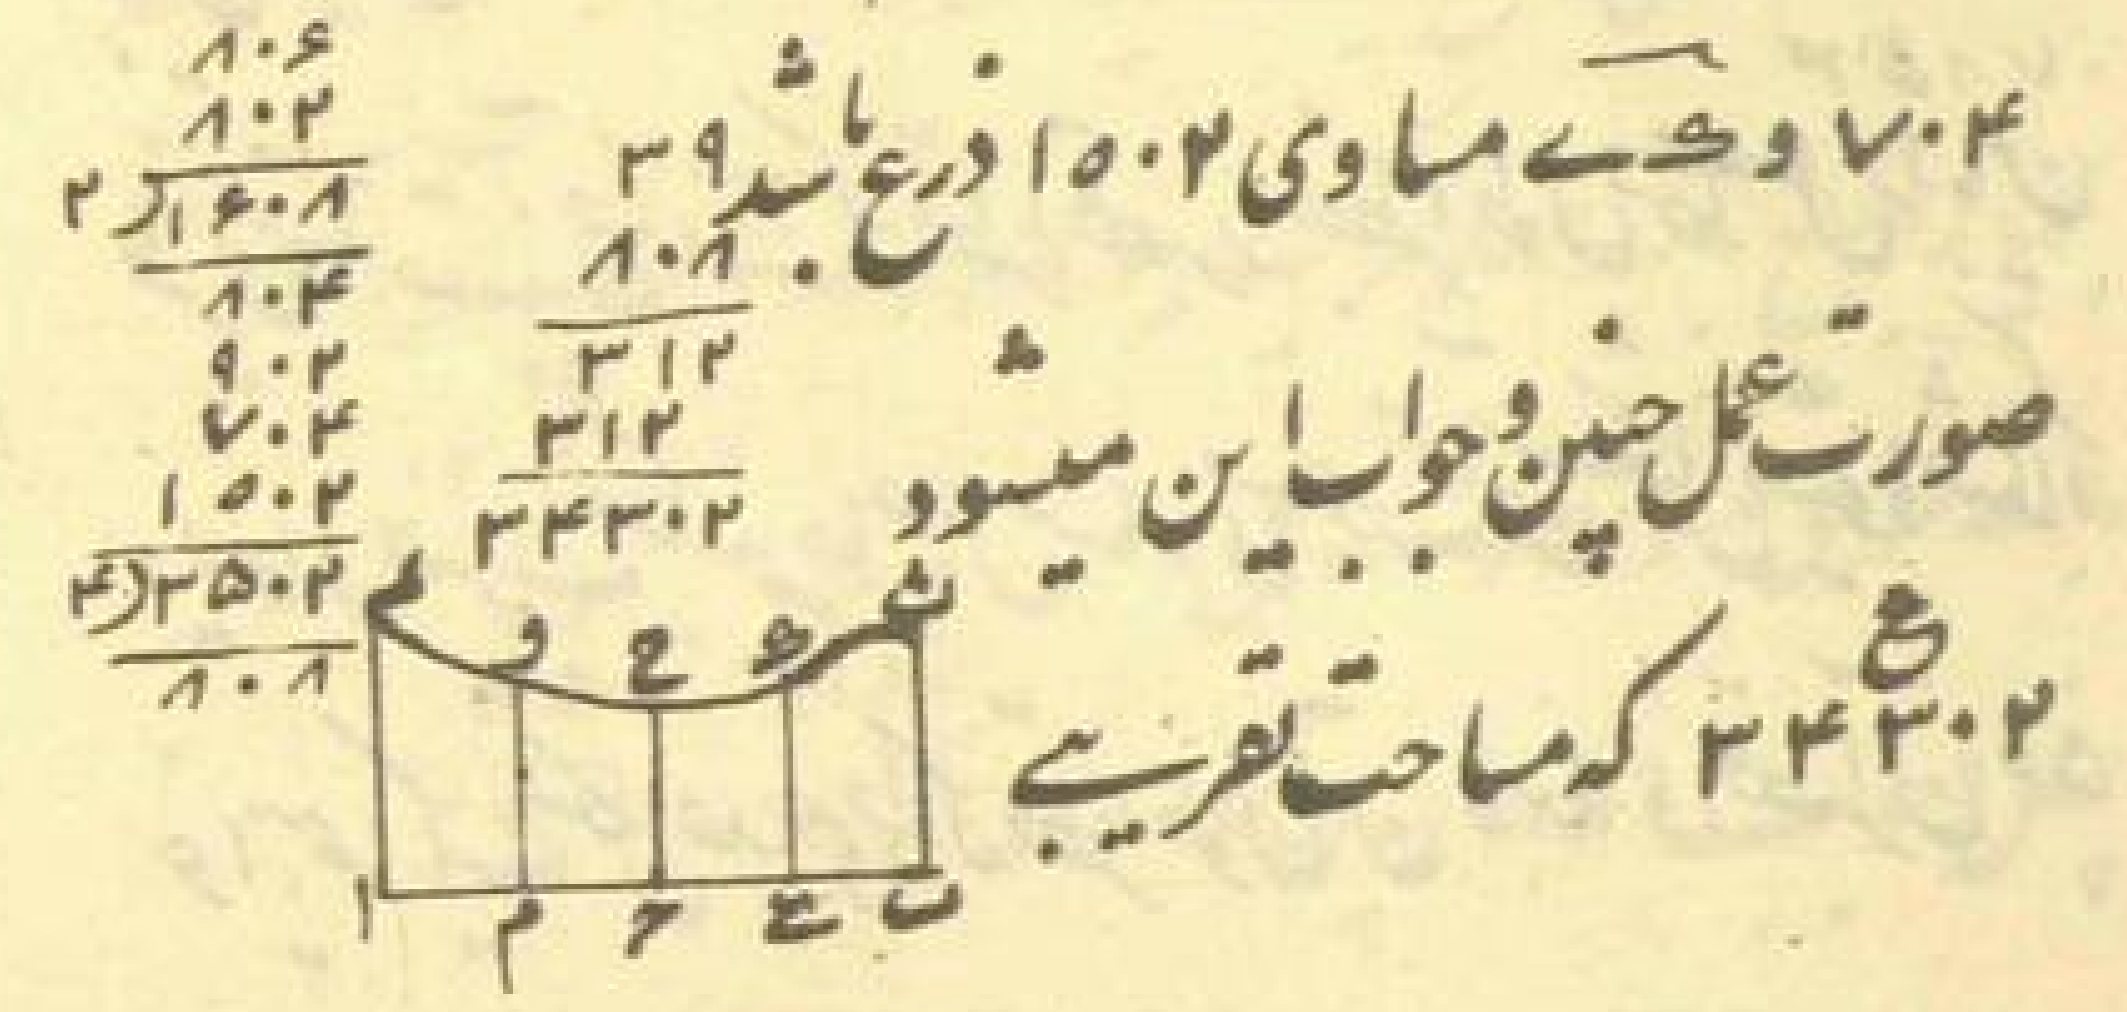 ۷۰۴ و ے مساوی ۱۵۰۲ ذرع باشد
صورت عمل چنین و جواب این میشود
۳۴۳۰۲ که مساحت تقریبی
۸۰۶
۸۰۲
۲)۱۶۰۸
۸۰۴
۹۰۲
۷۰۴
۱۵۰۲
۴)۳۵۰۲
۸۰۸
۳۹
۸۰۸
۳۱۲
۳۱۲
۳۴۳۰۲
و ح ه
ا م ح ع ب